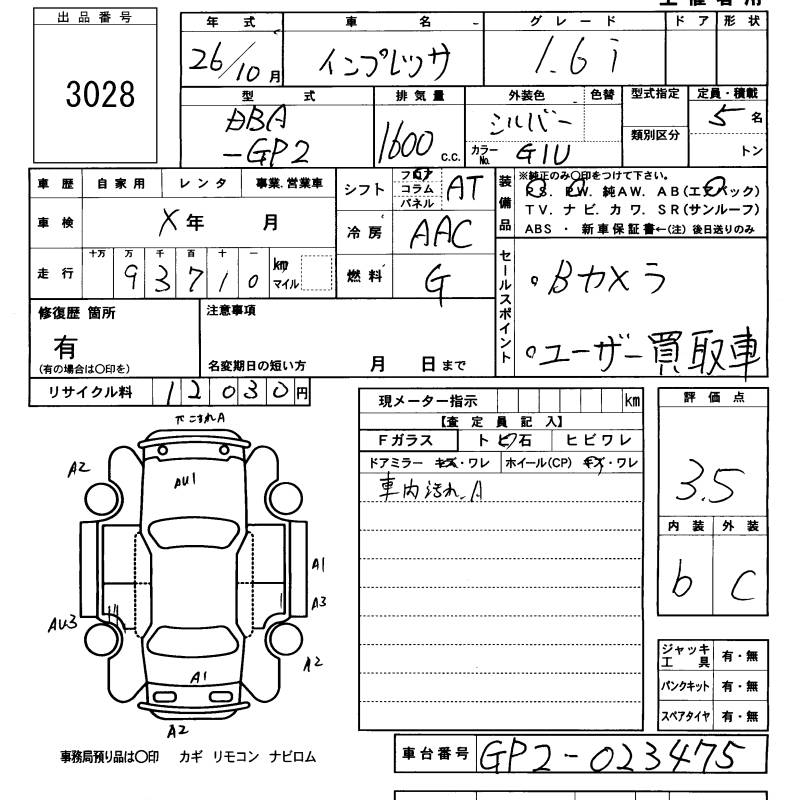 出品番号
3028
年式 車名 グレード ドア 形状
26/10月 インプレッサ 1.6i
型式 排気量 外装色 色替 型式指定 定員・積載
DBA
-GP2 1600c.c. シルバー 5名
カラーNo. G1U 類別区分 トン
車歴 自家用 レンタ 事業.営業車
シフト フロア コラム パネル AT
装備品 ※純正のみ〇印をつけて下さい。
P.S. P.W. 純AW. AB(エアバック)
T V. ナビ. カワ. SR(サンルーフ)
ABS ・ 新車保証書←(注) 後日送りのみ
車検 X年 月
冷房 AAC
走行 十万 万 千 百 十 一 km マイル
93710
燃料 G
セールスポイント
。Bカメラ
。ユーザー買取車
修復歴 箇所
有
(有の場合は〇印を)
注意事項
名変期日の短い方 月 日まで
リサイクル料 12030円
現メーター指示 km
【査定員記入】
Fガラス ト ビ 石 ヒビワレ
ドアミラー キズ・ワレ ホイール(CP) キズ・ワレ
車内汚れA
評価点
3.5
内装 外装
b C
下こすれA
A2
AU1
A1
A3
AU3
A2
A1
A2
ジャッキ工具 有・無
パンクキット 有・無
スペアタイヤ 有・無
事務局預り品は〇印 カギ リモコン ナビロム
車台番号 GP2-023475